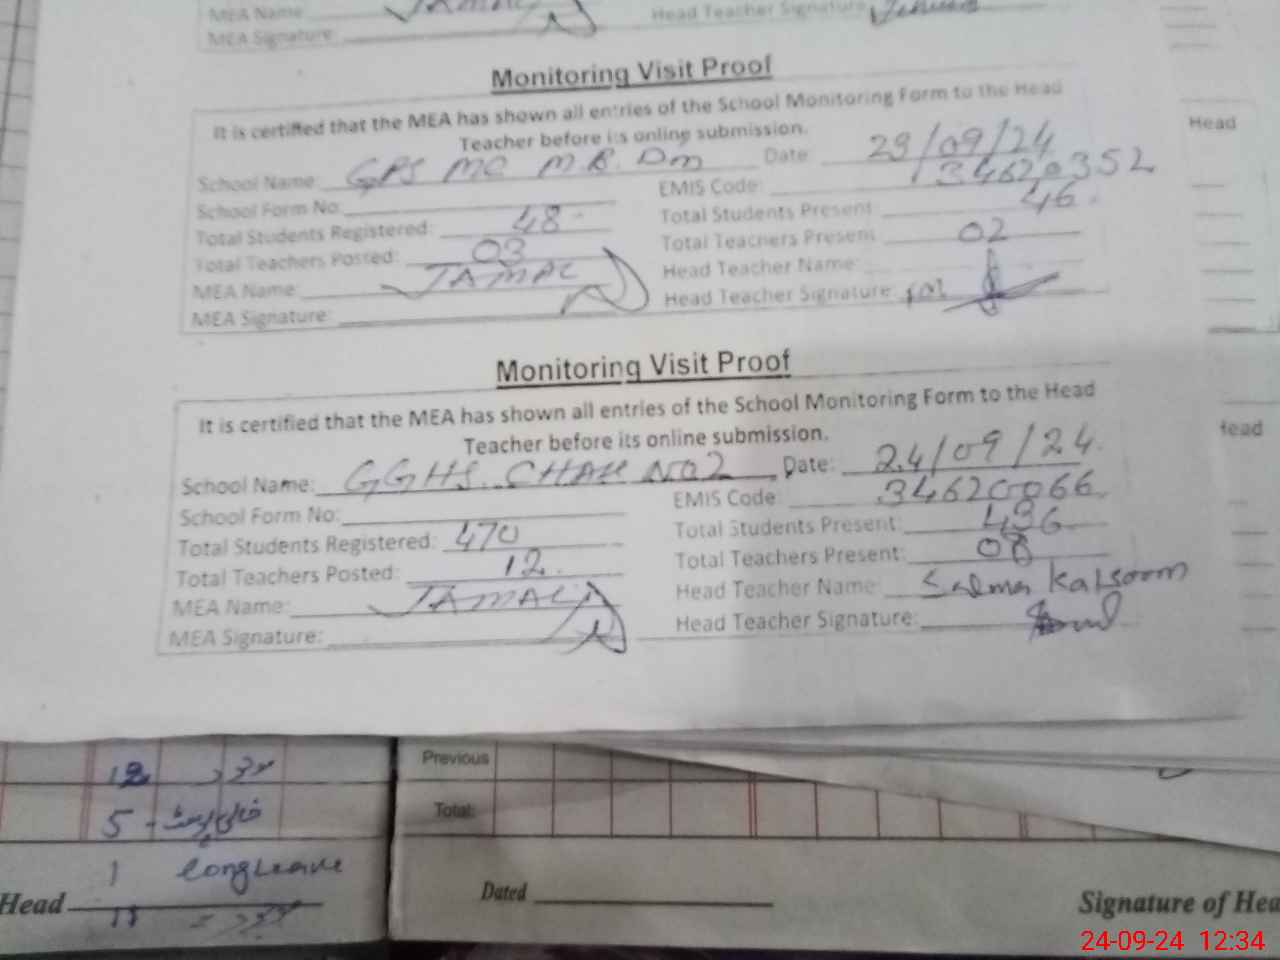 MEA Name:
Head Teacher Signature:
MEA Signature:
Monitoring Visit Proof
It is certified that the MEA has shown all entries of the School Monitoring Form to the Head
Teacher before its online submission.
School Name: GPS MC M.R. Dm Date: 23/09/24
School Form No: EMIS Code: 34620352
Total Students Registered: 48 Total Students Present: 46
Total Teachers Posted: 03 Total Teachers Present 02
MEA Name: JAMAL Head Teacher Name:
MEA Signature: Head Teacher Signature:
Monitoring Visit Proof
It is certified that the MEA has shown all entries of the School Monitoring Form to the Head
Teacher before its online submission.
School Name: GGHS. CHAK NO2 Date: 24/09/24.
School Form No: EMIS Code: 34620066
Total Students Registered: 470 Total Students Present: 436
Total Teachers Posted: 12. Total Teachers Present: 08
MEA Name: JAMAL Head Teacher Name: Salma Kalsoom
MEA Signature: Head Teacher Signature:
Head
Head
12
5 - خالی پوسٹ
1 long Leave
Head
Previous
Total:
Dated
Signature of Hea
24-09-24 12:34